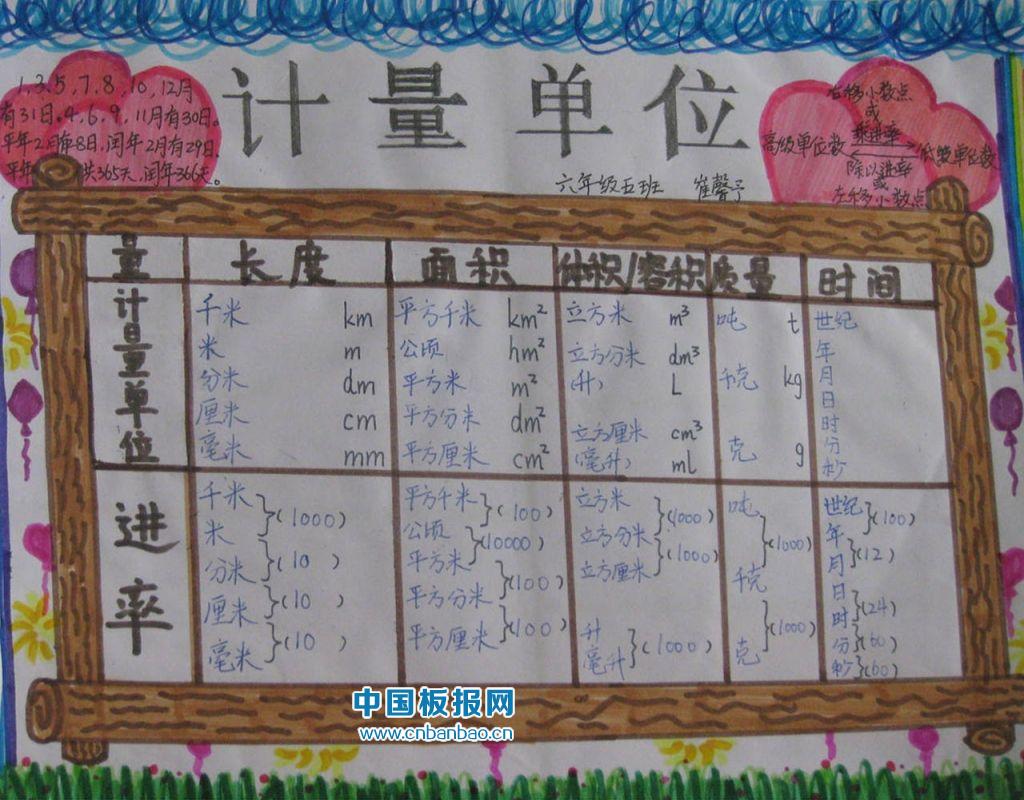 计量单位
六年级五班 崔馨予
1,3,5,7,8,10,12月
有31日。4,6,9,11月有30日。
平年2月有28日,闰年2月有29日。
平年 共365天,闰年366天。
右移小数点
或
乘进率
高级单位数 低级单位数
除以进率
或
左移小数点
量 长度 面积 体积/容积 质量 时间
计量单位
千米 km
米 m
分米 dm
厘米 cm
毫米 mm
平方千米 km²
公顷 hm²
平方米 m²
平方分米 dm²
平方厘米 cm²
立方米 m³
立方分米 dm³
(升) L
立方厘米 cm³
(毫升) ml
吨 t
千克 kg
克 g
世纪
年
月
日
时
分
秒
进率
千米
(1000)
米
(10)
分米
(10)
厘米
(10)
毫米
平方千米
(100)
公顷
(10000)
平方米
(100)
平方分米
(100)
平方厘米
立方米
(1000)
立方分米
(1000)
立方厘米
升
(1000)
毫升
吨
(1000)
千克
(1000)
克
世纪
(100)
年
(12)
月
日
(24)
时
(60)
分
(60)
秒
中国板报网
www.cnbanbao.cn